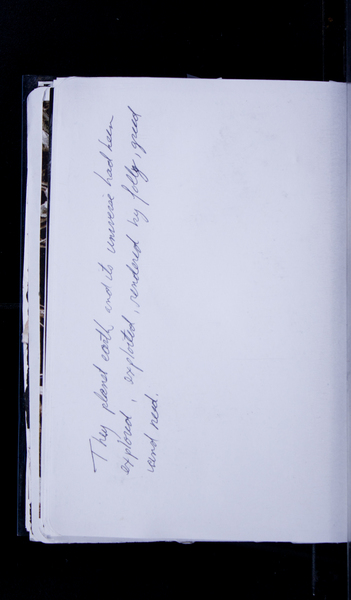 They planet earth and its universe had been
explored, exploited, rendered by folly, greed
and need.